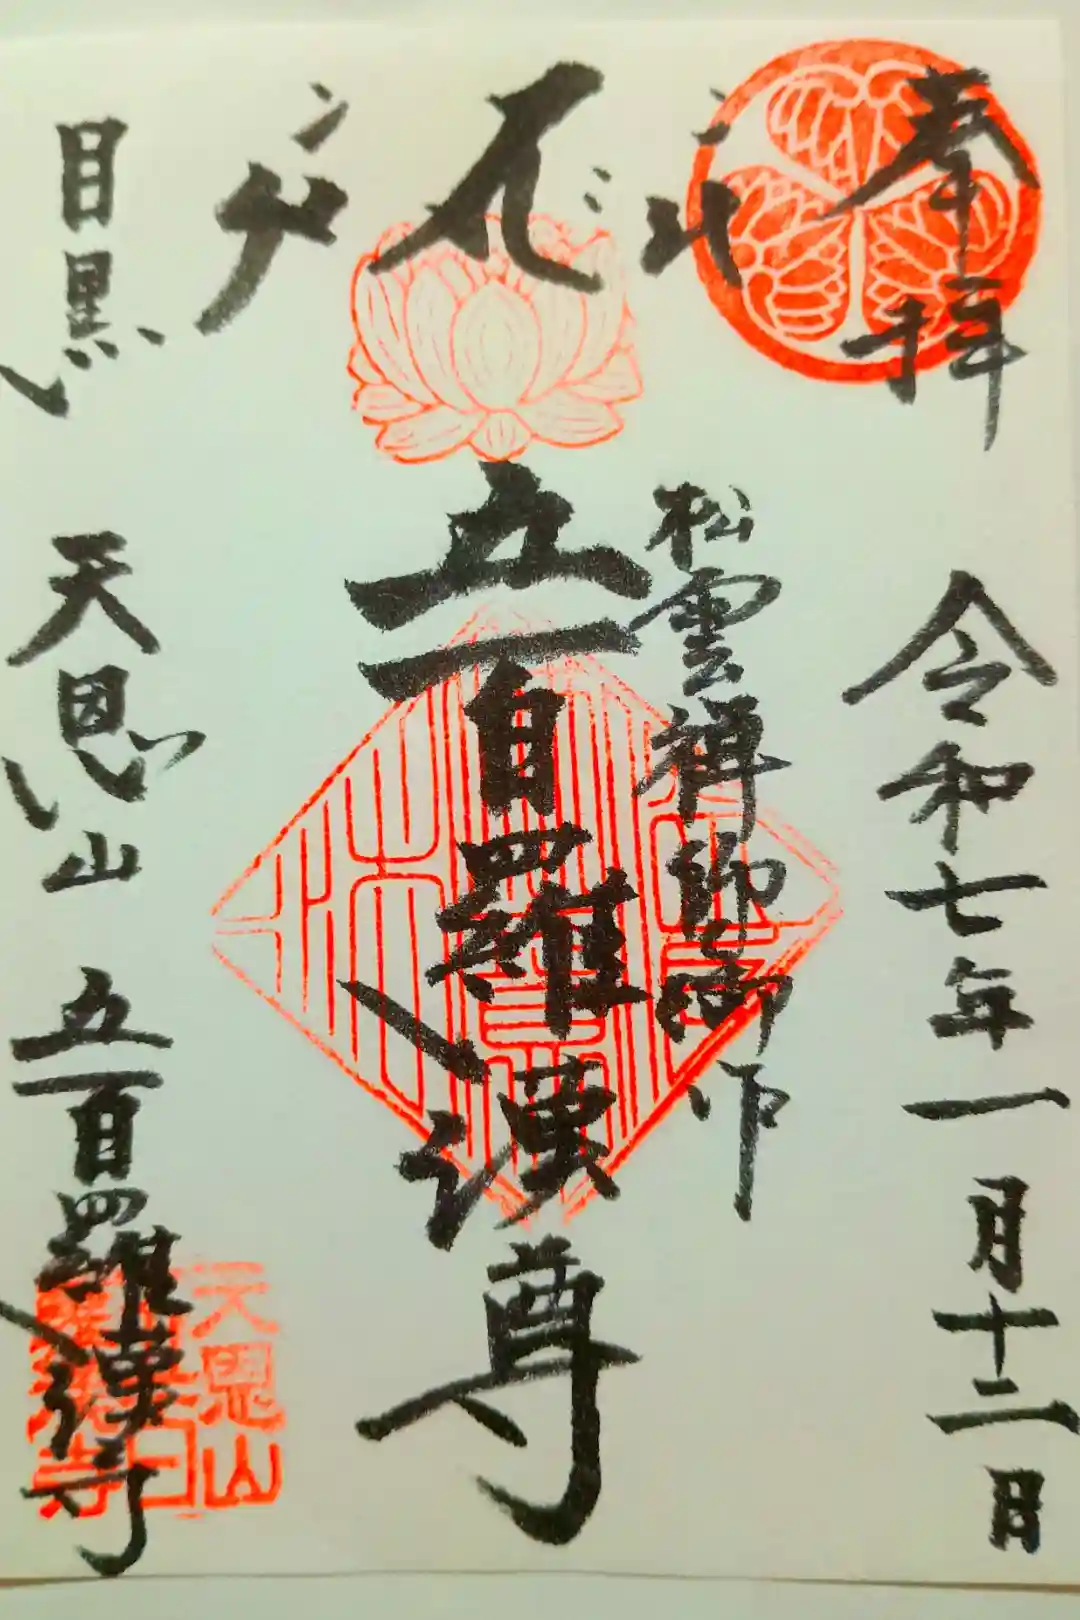 奉拝
令和七年一月十二日
松雲禅師御作
五百羅漢尊
目黒
天恩山
五百羅漢寺
天恩山
五百羅漢寺